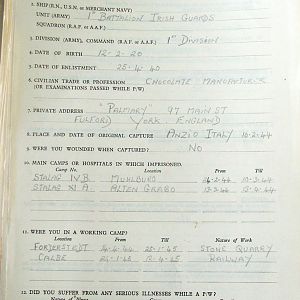 2. SHIP (R.N., U.S.N. or MERCHANT NAVY)
UNIT (ARMY) 1st BATTALION IRISH GUARDS
SQUADRON (R.A.F. or A.A.F.)
3. DIVISION (ARMY), COMMAND (R.A.F. or A.A.F.) 1st DIVISION
4. DATE OF BIRTH 12-2-20
5. DATE OF ENLISTMENT 25-4-40
6. CIVILIAN TRADE OR PROFESSION CHOCOLATE MANUFACTURER
(OR EXAMINATIONS PASSED WHILE P/W)
7. PRIVATE ADDRESS "PALMARY" 97 MAIN ST
FULFORD YORK ENGLAND
8. PLACE AND DATE OF ORIGINAL CAPTURE ANZIO ITALY 10-2-44
9. WERE YOU WOUNDED WHEN CAPTURED? NO
10. MAIN CAMPS OR HOSPITALS IN WHICH IMPRISONED.
Camp No. Location From Till
STALAG IV B MUHLBURG 2-44 10-3-44
STALAG XI A ALTEN GRABO -3-44 -4-44
11. WERE YOU IN A WORKING CAMP?
Location From Till Nature of Work
FORDERSTEDT -4-44 -1-45 STONE QUARRY
CALBE -1-45 -4-45 RAILWAY
12. DID YOU SUFFER FROM ANY SERIOUS ILLNESSES WHILE A P/W?